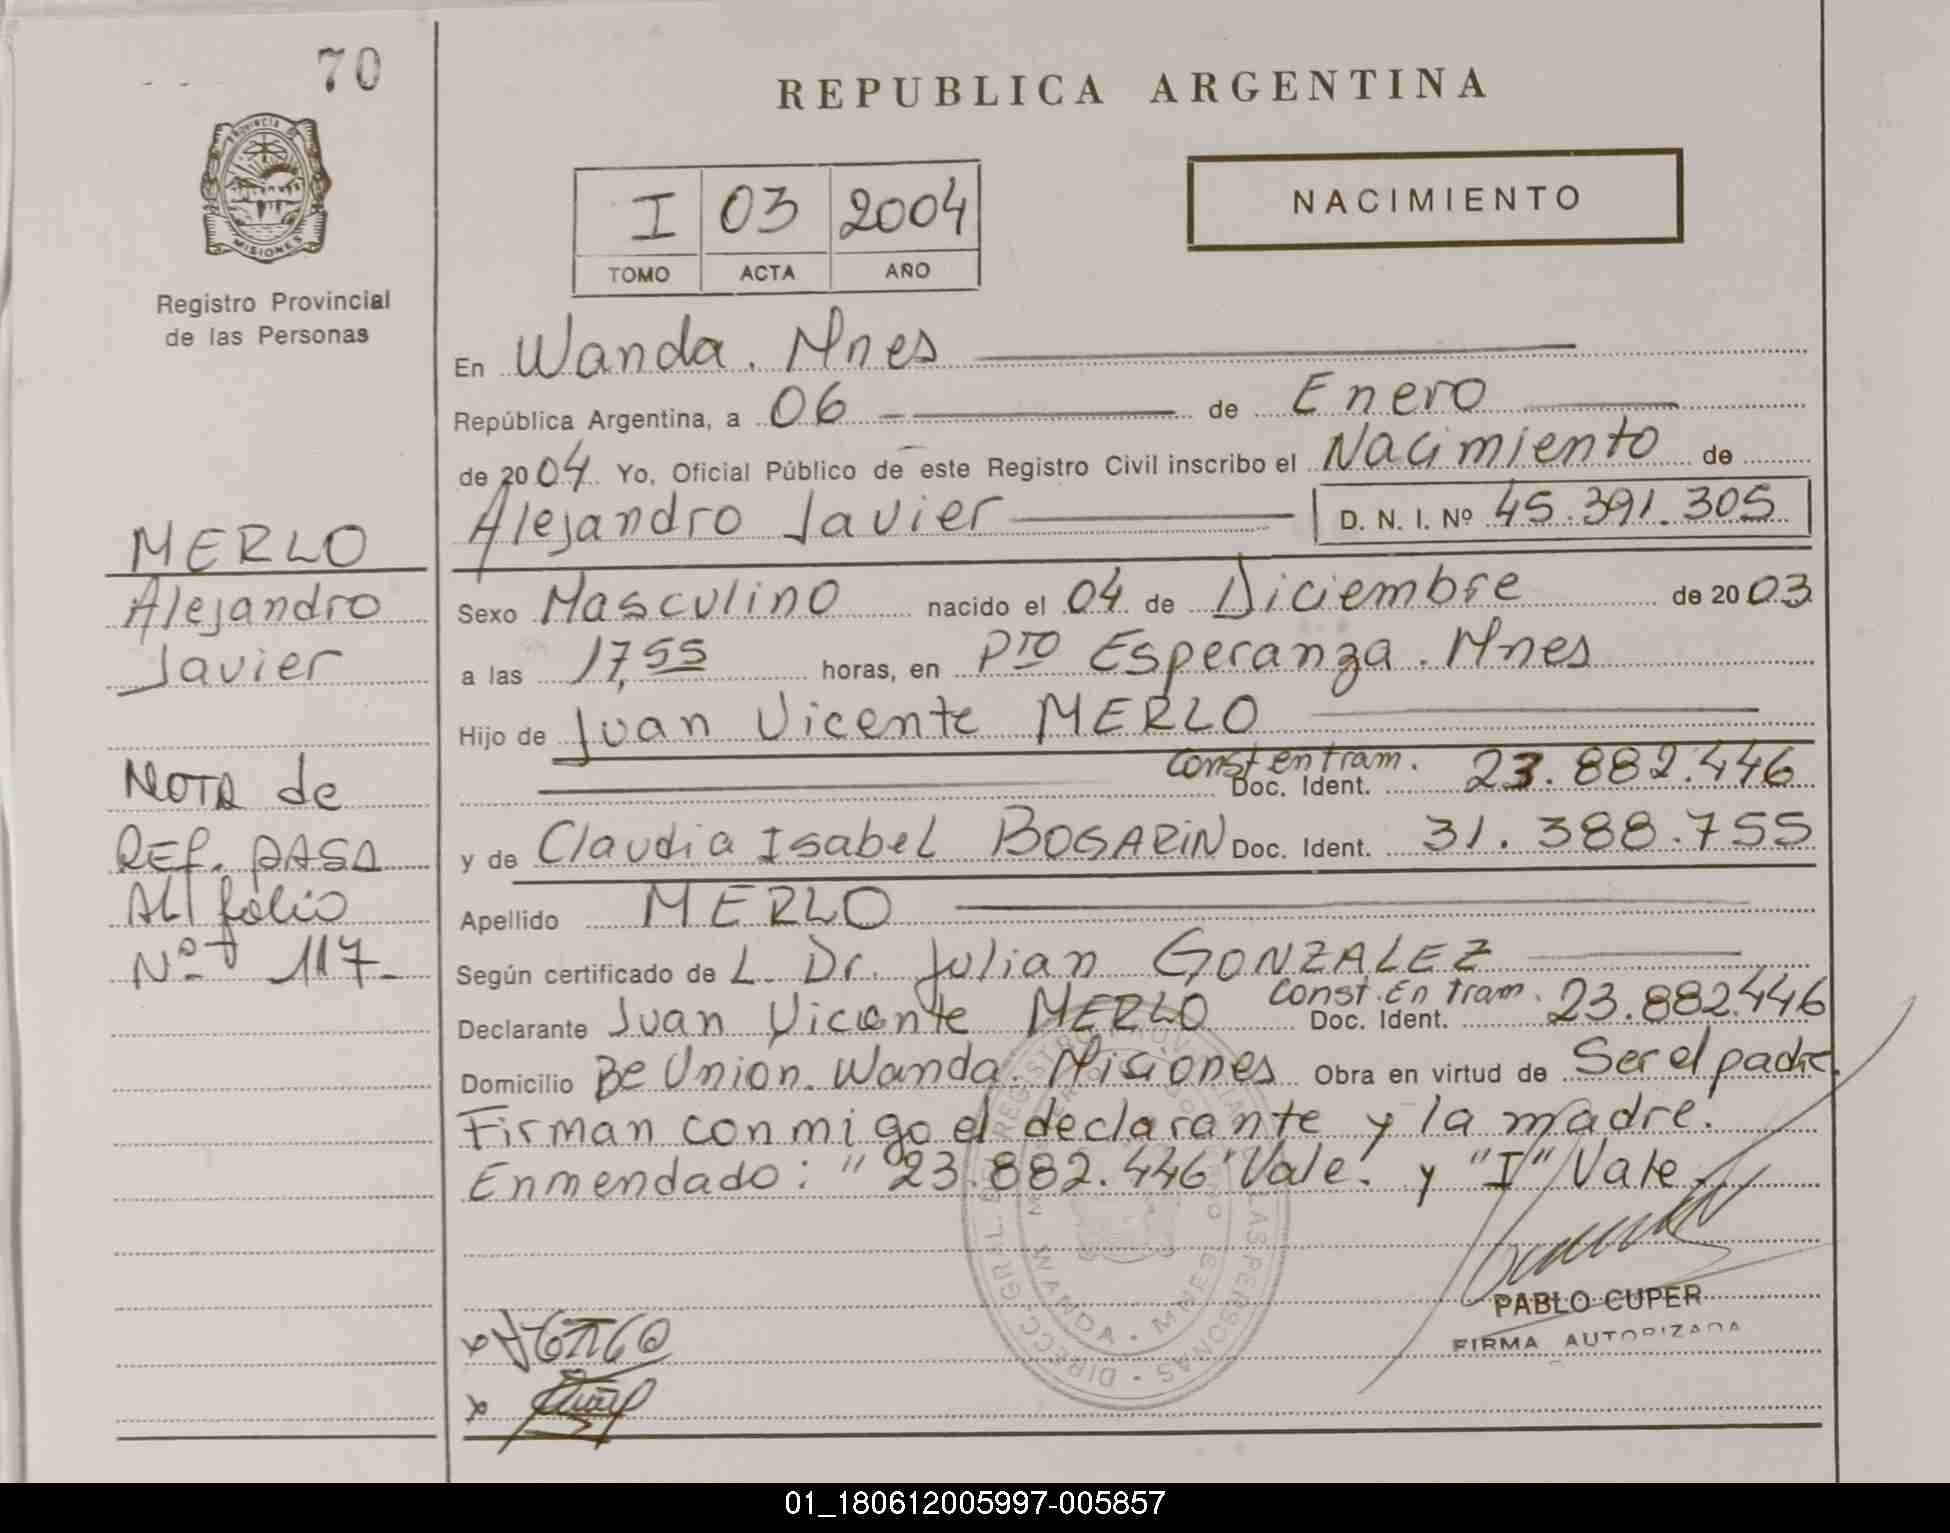 70
PROVINCIA DE
MISIONES
Registro Provincial
de las Personas
MERLO
Alejandro
Javier
NOTA de
REF. PASA
AL folio
Nº 117-
REPUBLICA ARGENTINA
NACIMIENTO
I 03 2004
TOMO ACTA AÑO
En Wanda. Mnes
República Argentina, a 06 de Enero
de 2004 Yo, Oficial Público de este Registro Civil inscribo el Nacimiento de
Alejandro Javier D. N. I. Nº 45.391.305
Sexo Masculino nacido el 04 de Diciembre de 2003
a las 17,55 horas, en Pto Esperanza. Mnes
Hijo de Juan Vicente MERLO
Const en tram. Doc. Ident. 23.882.446
y de Claudia Isabel BOGARIN Doc. Ident. 31.388.755
Apellido MERLO
Según certificado de L. Dr. Julian GONZALEZ
Declarante Juan Vicente MERLO Const. En tram. Doc. Ident. 23.882.446
Domicilio Be Union. Wanda. Misiones Obra en virtud de Ser el padre.
Firman conmigo el declarante y la madre.
Enmendado: "23.882.446" Vale. y "I" Vale.
PABLO CUPER
FIRMA AUTORIZADA
WANDA - MNES
01_180612005997-005857